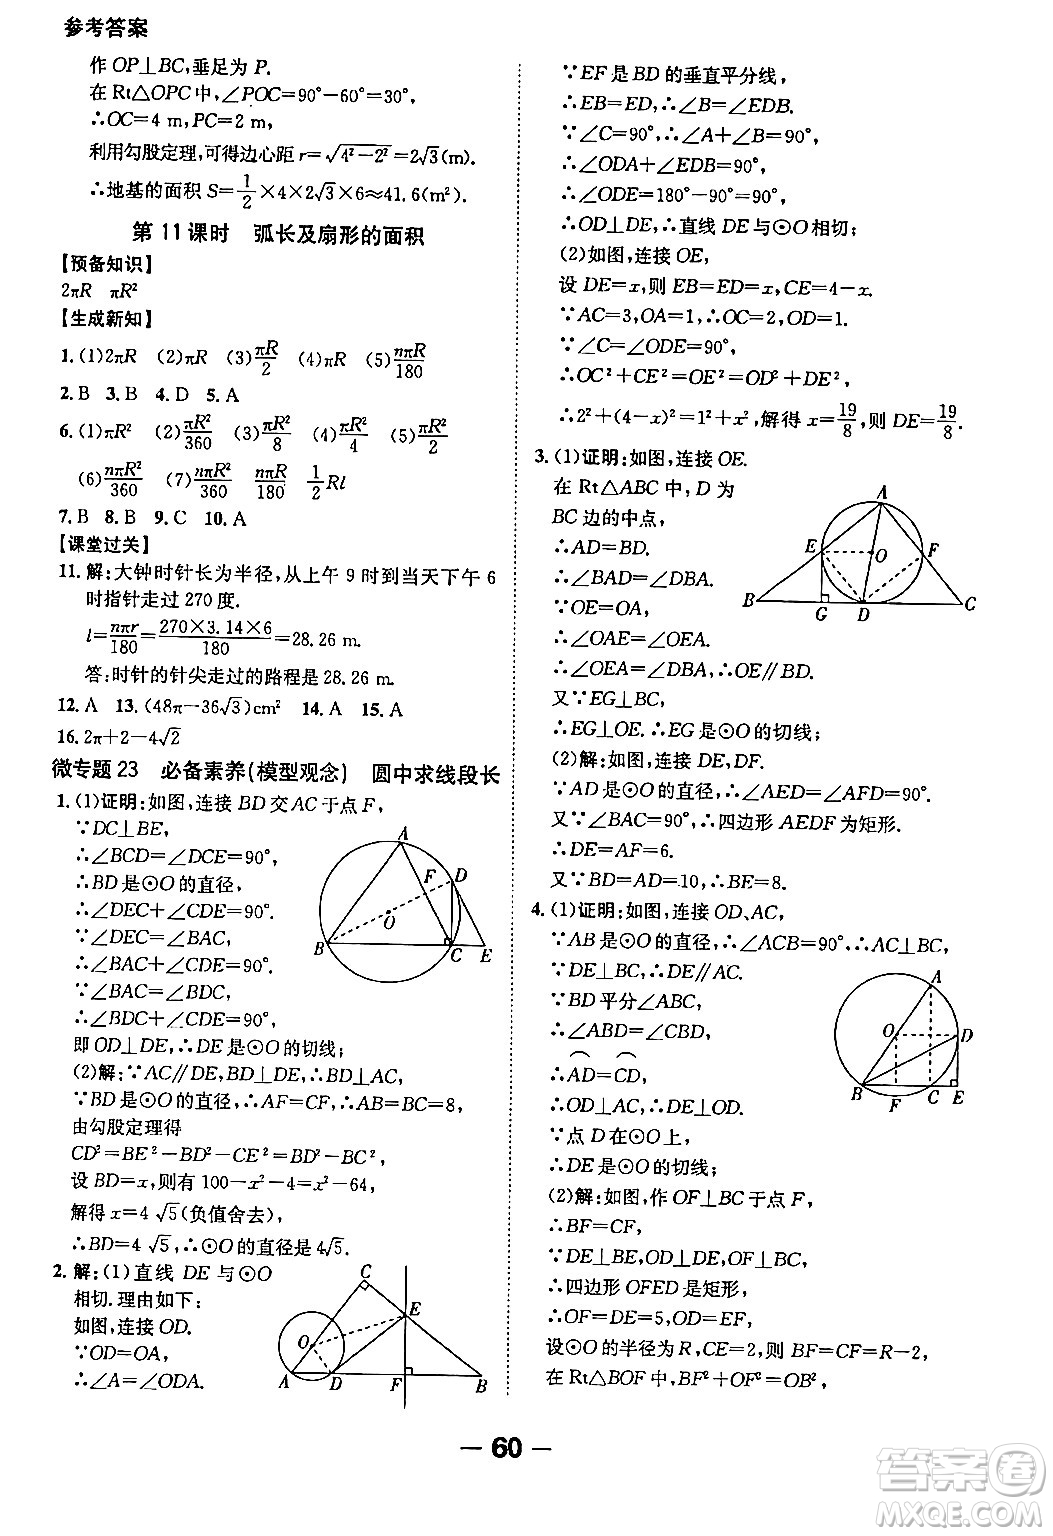 参考答案
作 OP⊥BC,垂足为 P.
在 Rt△OPC 中,∠POC=90°-60°=30°,
∴OC=4 m,PC=2 m,
利用勾股定理,可得边心距 r=√(4²-2²)=2√3(m).
∴地基的面积 S=1/2×4×2√3×6≈41.6(m²).
第 11 课时 弧长及扇形的面积
【预备知识】
2πR πR²
【生成新知】
1.(1)2πR (2)πR (3)πR/2 (4)πR (5)nπR/180
2.B 3.B 4.D 5.A
6.(1)πR² (2)πR²/360 (3)πR²/8 (4)πR²/4 (5)πR²/2
(6)nπR²/360 (7)nπR²/360 nπR/180 1/2Rl
7.B 8.B 9.C 10.A
【课堂过关】
11.解:大钟时针长为半径,从上午 9 时到当天下午 6
时指针走过 270 度.
l=nπr/180=270×3.14×6/180=28.26 m.
答:时针的针尖走过的路程是 28.26 m.
12.A 13.(48π-36√3)cm² 14.A 15.A
16.2π+2-4√2
微专题 23 必备素养(模型观念) 圆中求线段长
1.(1)证明:如图,连接 BD 交 AC 于点 F,
∵DC⊥BE,
∴∠BCD=∠DCE=90°,
∴BD 是⊙O 的直径,
∴∠DEC+∠CDE=90°,
∵∠DEC=∠BAC,
∴∠BAC+∠CDE=90°,
∵∠BAC=∠BDC,
∴∠BDC+∠CDE=90°,
即 OD⊥DE,∴DE 是⊙O 的切线;
(2)解:∵AC∥DE,BD⊥DE,∴BD⊥AC,
∵BD 是⊙O 的直径,∴AF=CF,∴AB=BC=8,
由勾股定理得
CD²=BE²-BD²-CE²=BD²-BC²,
设 BD=x,则有 100-x²-4=x²-64,
解得 x=4√5(负值舍去),
∴BD=4√5,∴⊙O 的直径是 4√5.
2.解:(1)直线 DE 与⊙O
相切.理由如下:
如图,连接 OD.
∵OD=OA,
∴∠A=∠ODA.
A
F D
O
B C E
C
E
O
A D F B
∵EF 是 BD 的垂直平分线,
∴EB=ED,∴∠B=∠EDB.
∵∠C=90°,∴∠A+∠B=90°,
∴∠ODA+∠EDB=90°,
∴∠ODE=180°-90°=90°,
∴OD⊥DE,∴直线 DE 与⊙O 相切;
(2)如图,连接 OE,
设 DE=x,则 EB=ED=x,CE=4-x.
∵AC=3,OA=1,∴OC=2,OD=1.
∵∠C=∠ODE=90°,
∴OC²+CE²=OE²=OD²+DE²,
∴2²+(4-x)²=1²+x²,解得 x=19/8,则 DE=19/8.
3.(1)证明:如图,连接 OE.
在 Rt△ABC 中,D 为
BC 边的中点,
∴AD=BD.
∴∠BAD=∠DBA,
∵OE=OA,
∴∠OAE=∠OEA.
∴∠OEA=∠DBA,∴OE∥BD.
又∵EG⊥BC,
∴EG⊥OE.∴EG 是⊙O 的切线;
(2)解:如图,连接 DE,DF.
∵AD 是⊙O 的直径,∴∠AED=∠AFD=90°.
又∵∠BAC=90°,∴四边形 AEDF 为矩形.
∴DE=AF=6.
又∵BD=AD=10,∴BE=8.
4.(1)证明:如图,连接 OD、AC,
∵AB 是⊙O 的直径,∴∠ACB=90°,∴AC⊥BC,
∵DE⊥BC,∴DE∥AC.
∵BD 平分∠ABC,
∴∠ABD=∠CBD,
∴⌒AD=⌒CD,
∴OD⊥AC,∴DE⊥OD.
∵点 D 在⊙O 上,
∴DE 是⊙O 的切线;
(2)解:如图,作 OF⊥BC 于点 F,
∴BF=CF,
∵DE⊥BE,OD⊥DE,OF⊥BC,
∴四边形 OFED 是矩形,
∴OF=DE=5,OD=EF,
设⊙O 的半径为 R,CE=2,则 BF=CF=R-2,
在 Rt△BOF 中,BF²+OF²=OB²,
A
E O F
B G D C
A
O D
B F C E
— 60 —
答案圈
MXQE.COM